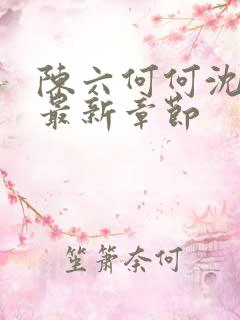 陳六何何沈
最新章節
笙簫奈何